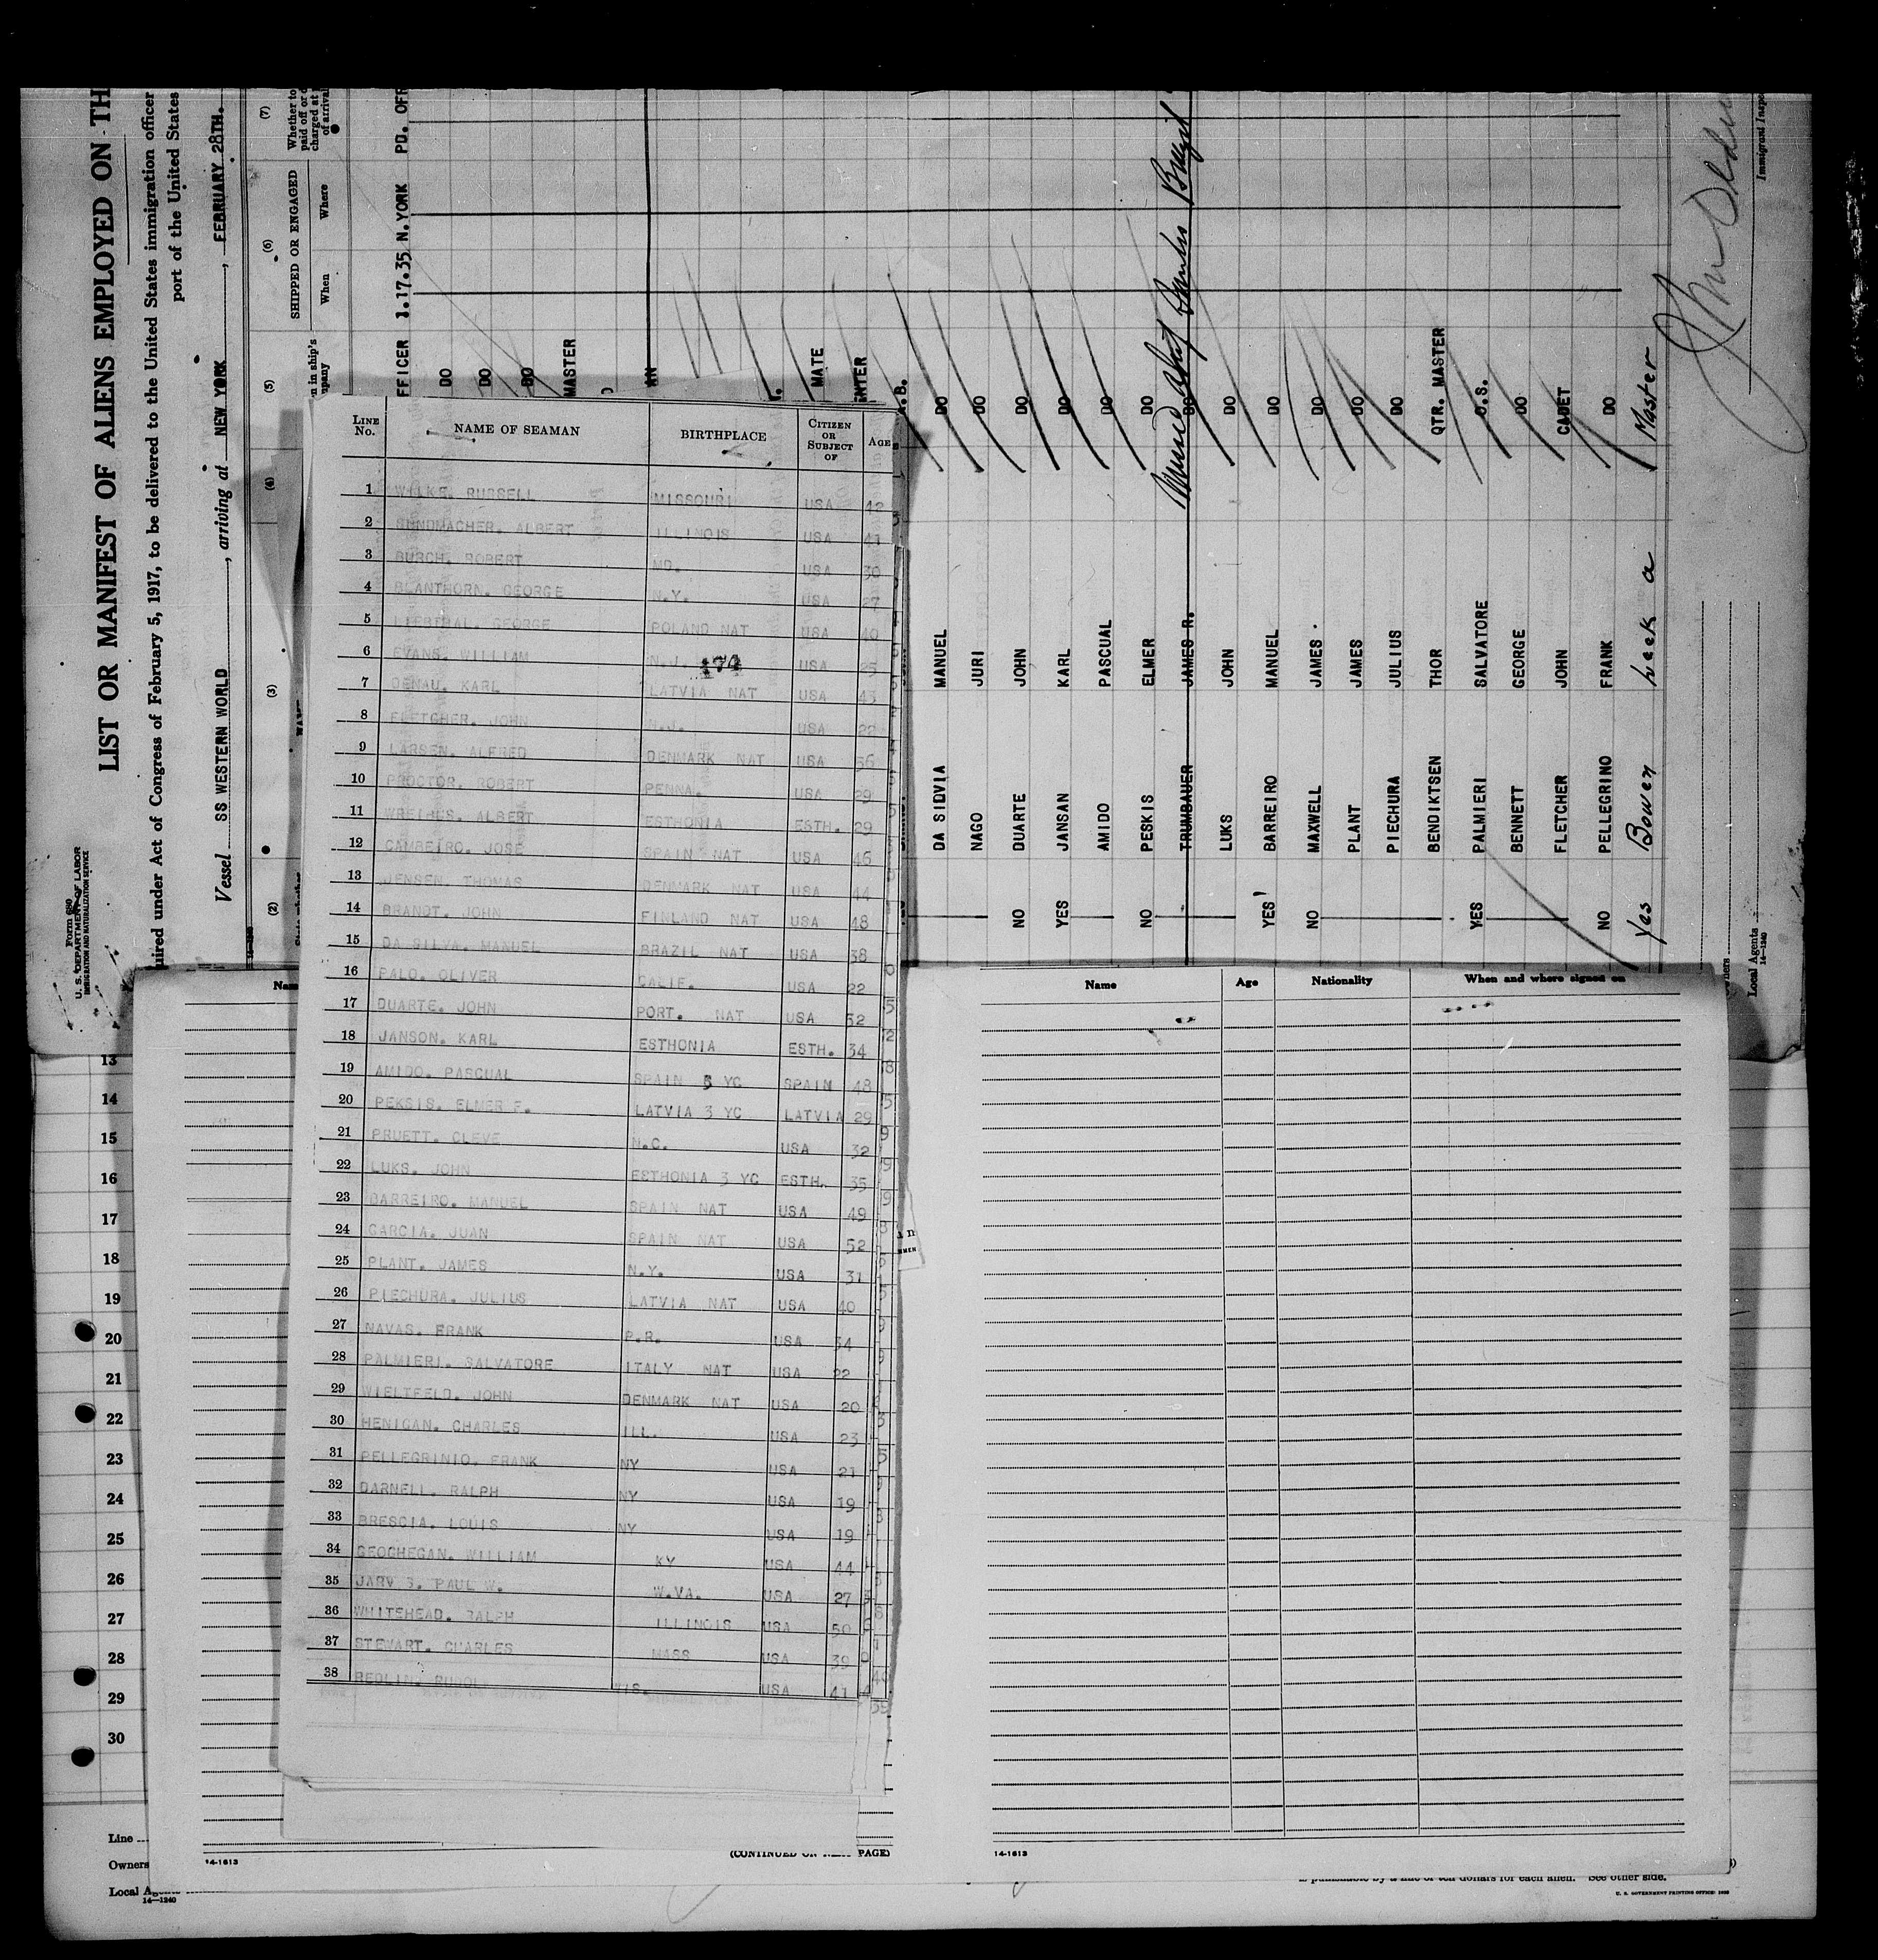 LIST OR MANIFEST OF ALIENS EMPLOYED ON TH
uired under Act of Congress of February 5, 1917, to be delivered to the United States immigration officer
port of the United States
Vessel SS WESTERN WORLD, arriving at NEW YORK, FEBRUARY 28TH.
Form 680
U. S. DEPARTMENT OF LABOR
IMMIGRATION AND NATURALIZATION SERVICE
(2) (3) (4) (5) (6) (7)
SHIPPED OR ENGAGED
When Where
Whether to
paid off or
charged at
of arrival
n in ship's
pany
FFICER 1.17.35 N.YORK PD. OFF
DO
DO
DO
MASTER
AN
MATE
NTER
A.B.
DA SIDVIA MANUEL DO
NAGO JURI DO
NO DUARTE JOHN DO
YES JANSAN KARL DO
AMIDO PASCUAL DO
NO PESKIS ELMER DO
TRUMBAUER JAMES R. DO
LUKS JOHN DO
YES BARREIRO MANUEL DO
NO MAXWELL JAMES DO
PLANT JAMES DO
PIECHURA JULIUS DO
BENDIKTSEN THOR QTR. MASTER
YES PALMIERI SALVATORE O.S.
BENNETT GEORGE DO
FLETCHER JOHN CADET
NO PELLEGRINO FRANK DO
Yes Bowen Master
Immigrant Inspe
Local Agents
14-1240
LINE No. NAME OF SEAMAN BIRTHPLACE CITIZEN OR SUBJECT OF AGE
1 WILKE. RUSSELL MISSOURI USA 42
2 BUNDMACHER. ALBERT ILLINOIS USA 41
3 BURCH. ROBERT MD. USA 30
4 BLANTHORN. GEORGE N.Y. USA 27
5 GEORGE POLAND NAT USA 40
6 EVANS. WILLIAM N.J. 174 USA 25
7 DENAU. KARL LATVIA NAT USA 43
8 FLETCHER. JOHN N.J. USA 22
9 LARSEN. ALFRED DENMARK NAT USA 36
10 PROCTOR. ROBERT PENNA. USA 29
11 WREIBUS. ALBERT ESTHONIA ESTH. 29
12 CAMBEIRO. JOSE SPAIN NAT USA 46
13 JENSEN. THOMAS DENMARK NAT USA 44
14 BRANDT. JOHN FINLAND NAT USA 48
15 DA SILVA. MANUEL BRAZIL NAT USA 38
16 PALO. OLIVER CALIF. USA 22
17 DUARTE. JOHN PORT. NAT USA 52
18 JANSON. KARL ESTHONIA ESTH. 34
19 AMIDO. PASCUAL SPAIN 5 YC SPAIN 48
20 PEKSIS. ELMER F. LATVIA 3 YC LATVIA 29
21 PRUETT. CLEVE N.C. USA 32
22 LUKS. JOHN ESTHONIA 3 YC ESTH. 35
23 BARREIRO. MANUEL SPAIN NAT USA 49
24 GARCIA. JUAN SPAIN NAT USA 52
25 PLANT. JAMES N.Y. USA 31
26 PIECHURA. JULIUS LATVIA NAT USA 40
27 NAVAS. FRANK P.R. USA 34
28 PALMIERI. SALVATORE ITALY NAT USA 22
29 WIELTFELD. JOHN DENMARK NAT USA 20
30 HENIGAN. CHARLES ILL. USA 23
31 PELLEGRINIO. FRANK NY USA 21
32 DARNELL. RALPH NY USA 19
33 BRESCIA. LOUIS NY USA 19
34 GEOGHEGAN. WILLIAM KY USA 44
35 JARV S. PAUL W. W.VA. USA 27
36 WHITEHEAD. RALPH ILLINOIS USA 50
37 STEWART. CHARLES MASS USA 39
38 WIS. USA 41
Name Age Nationality When and where signed on
13
14
15
16
17
18
19
20
21
22
23
24
25
26
27
28
29
30
Line
Owners
Local A
14-1240
14-1613
(CONTINUED ON NEXT PAGE)
14-1613
is punishable by a fine of ten dollars for each alien. See other side.
U. S. GOVERNMENT PRINTING OFFICE